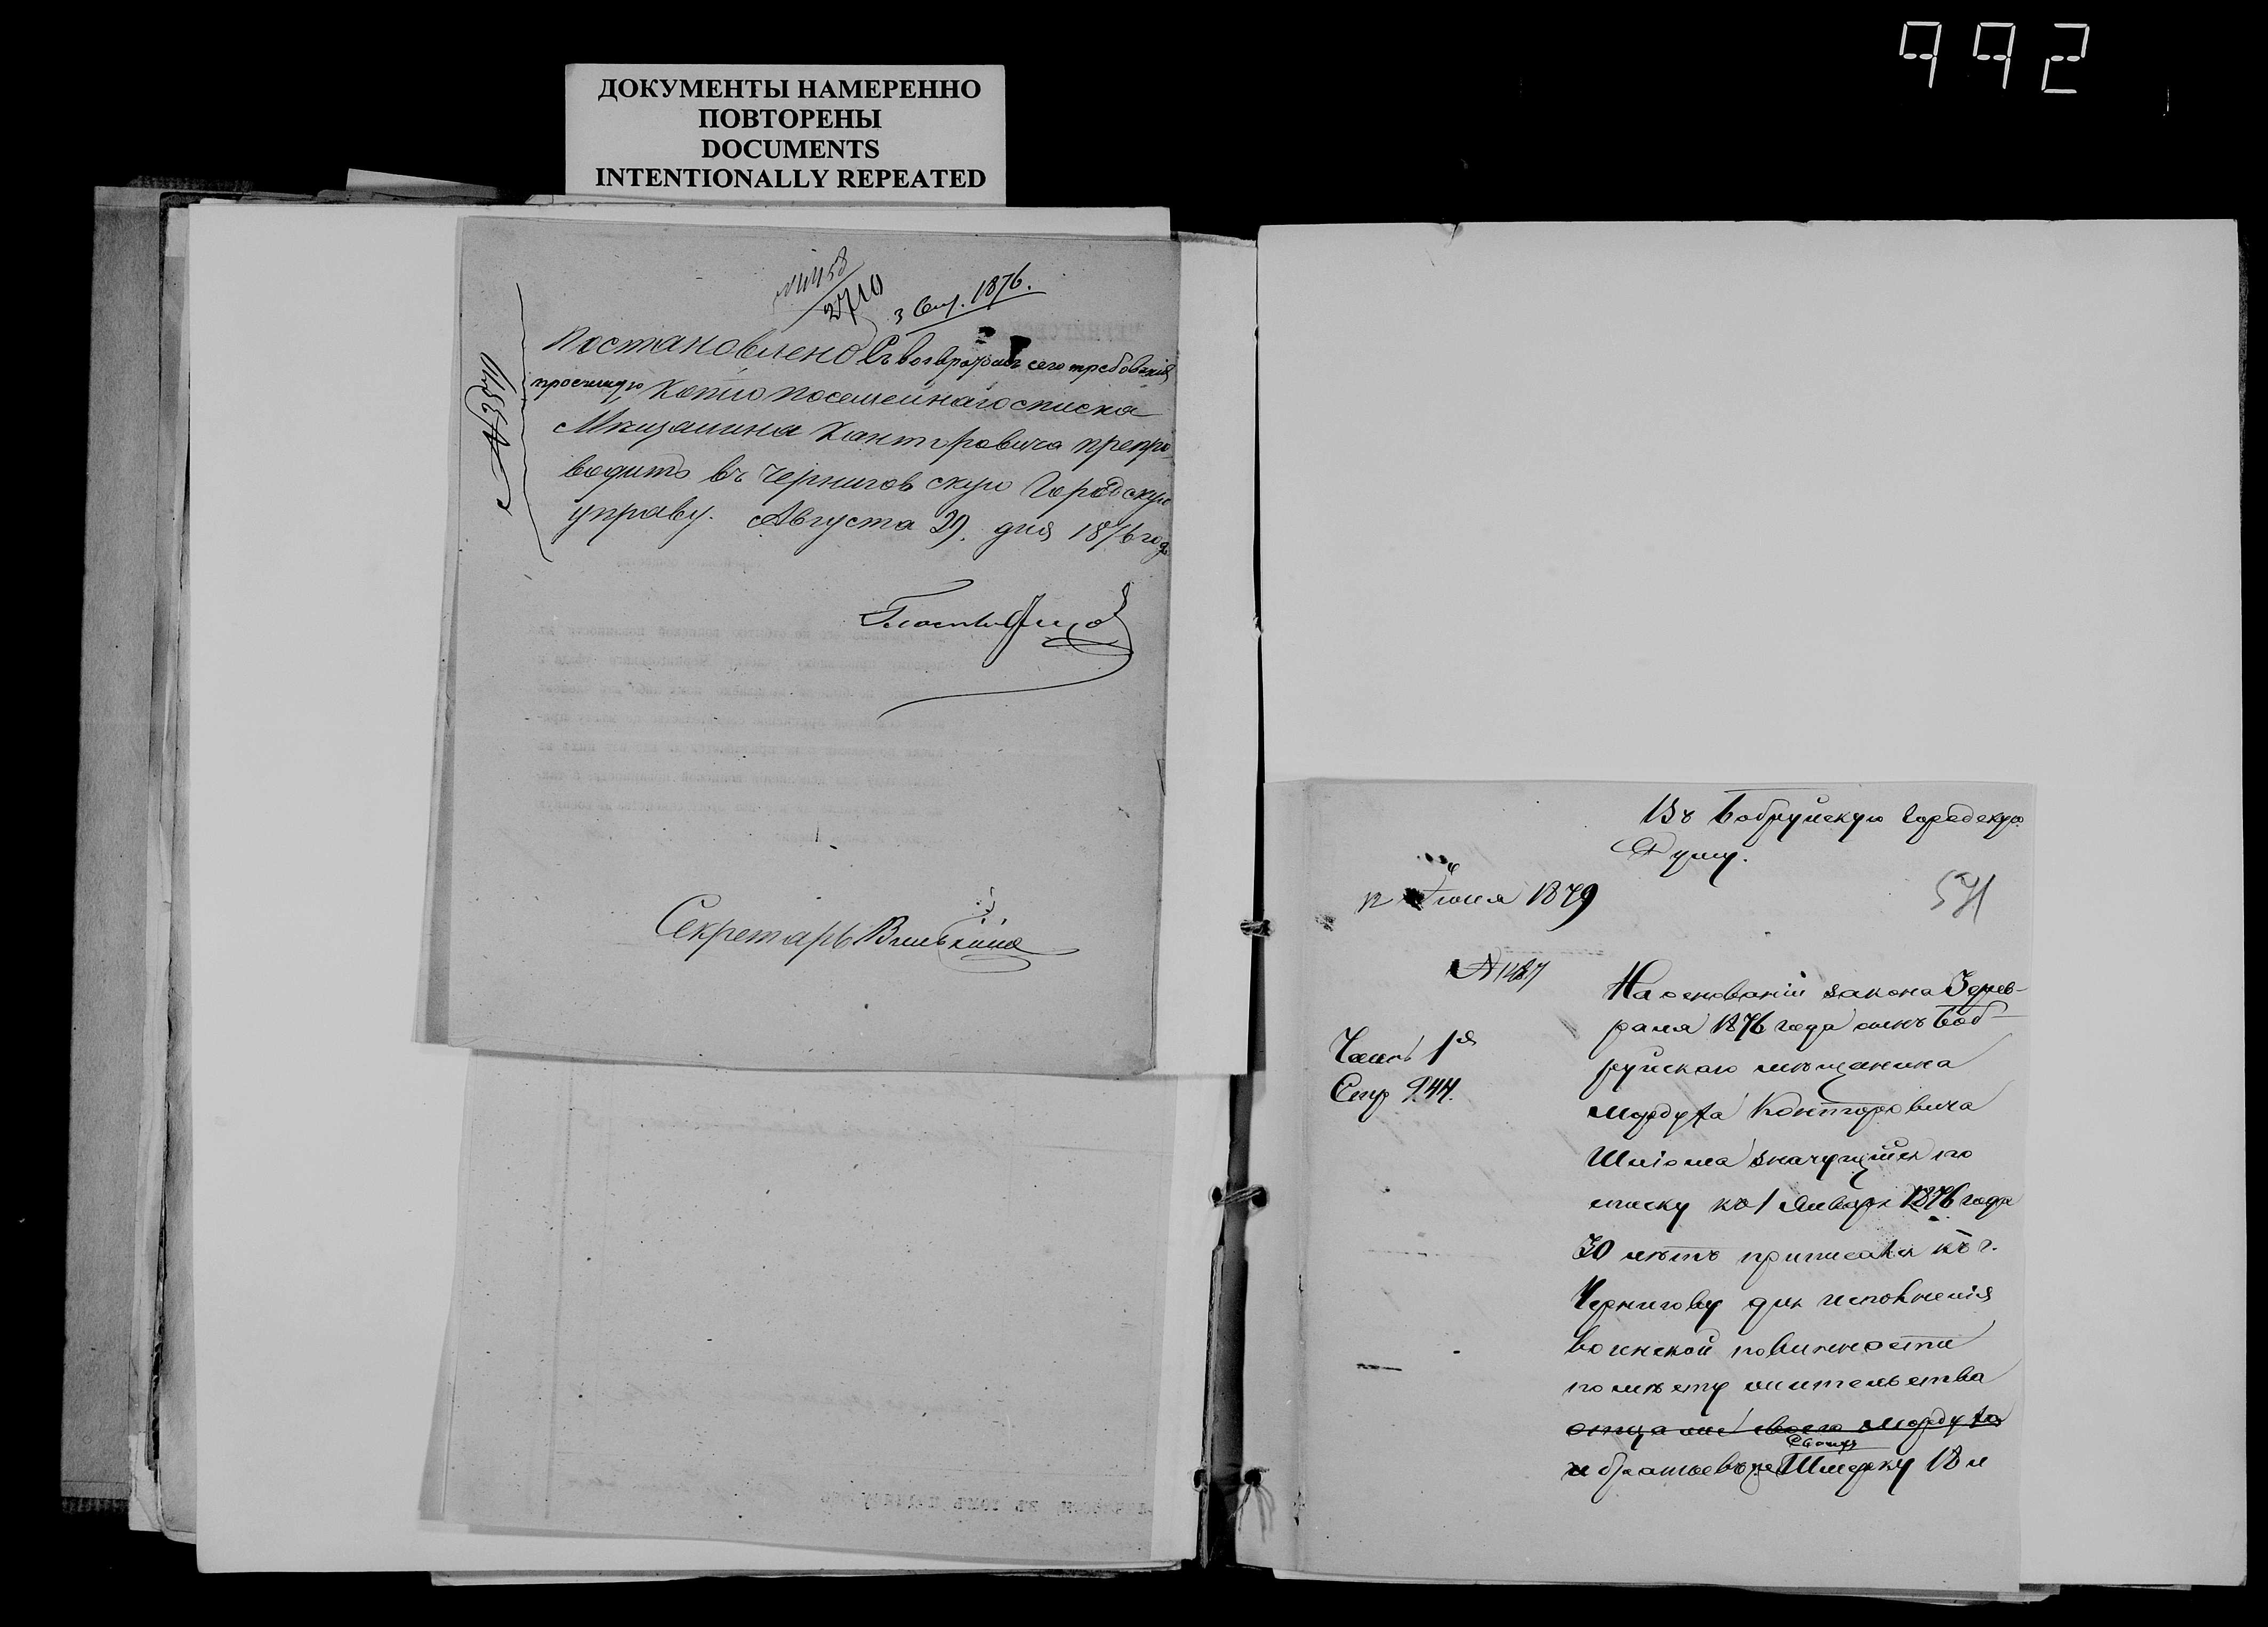 992
ДОКУМЕНТЫ НАМЕРЕННО
ПОВТОРЕНЫ
DOCUMENTS
INTENTIONALLY REPEATED
2710
3 Сен. 1876.
Постановлено Съ возвратомъ сего требованія
просимую Копію посемейнаго списка
Мѣщанина Канторовича препро-
водить въ Черниговскую Городскую
управу. Августа 29. дня 1876 года
Секретарь
Въ Бобруйскую Городскую
Думу.
12 Іюня 1879
571
№ 1487
На основаніи закона 3 фев-
раля 1876 года сынъ Боб-
руйскаго мѣщанина
Мордуха Канторовича
Шліома значущійся по
списку къ 1 Января 1876 года
30 лѣтъ приписанъ къ г.
Чернигову для исполненія
воинской повинности
по мѣсту жительства
отца своего Мордуха
и братьевъ Шмерку 18 л
Часть 1я
Стр 944.